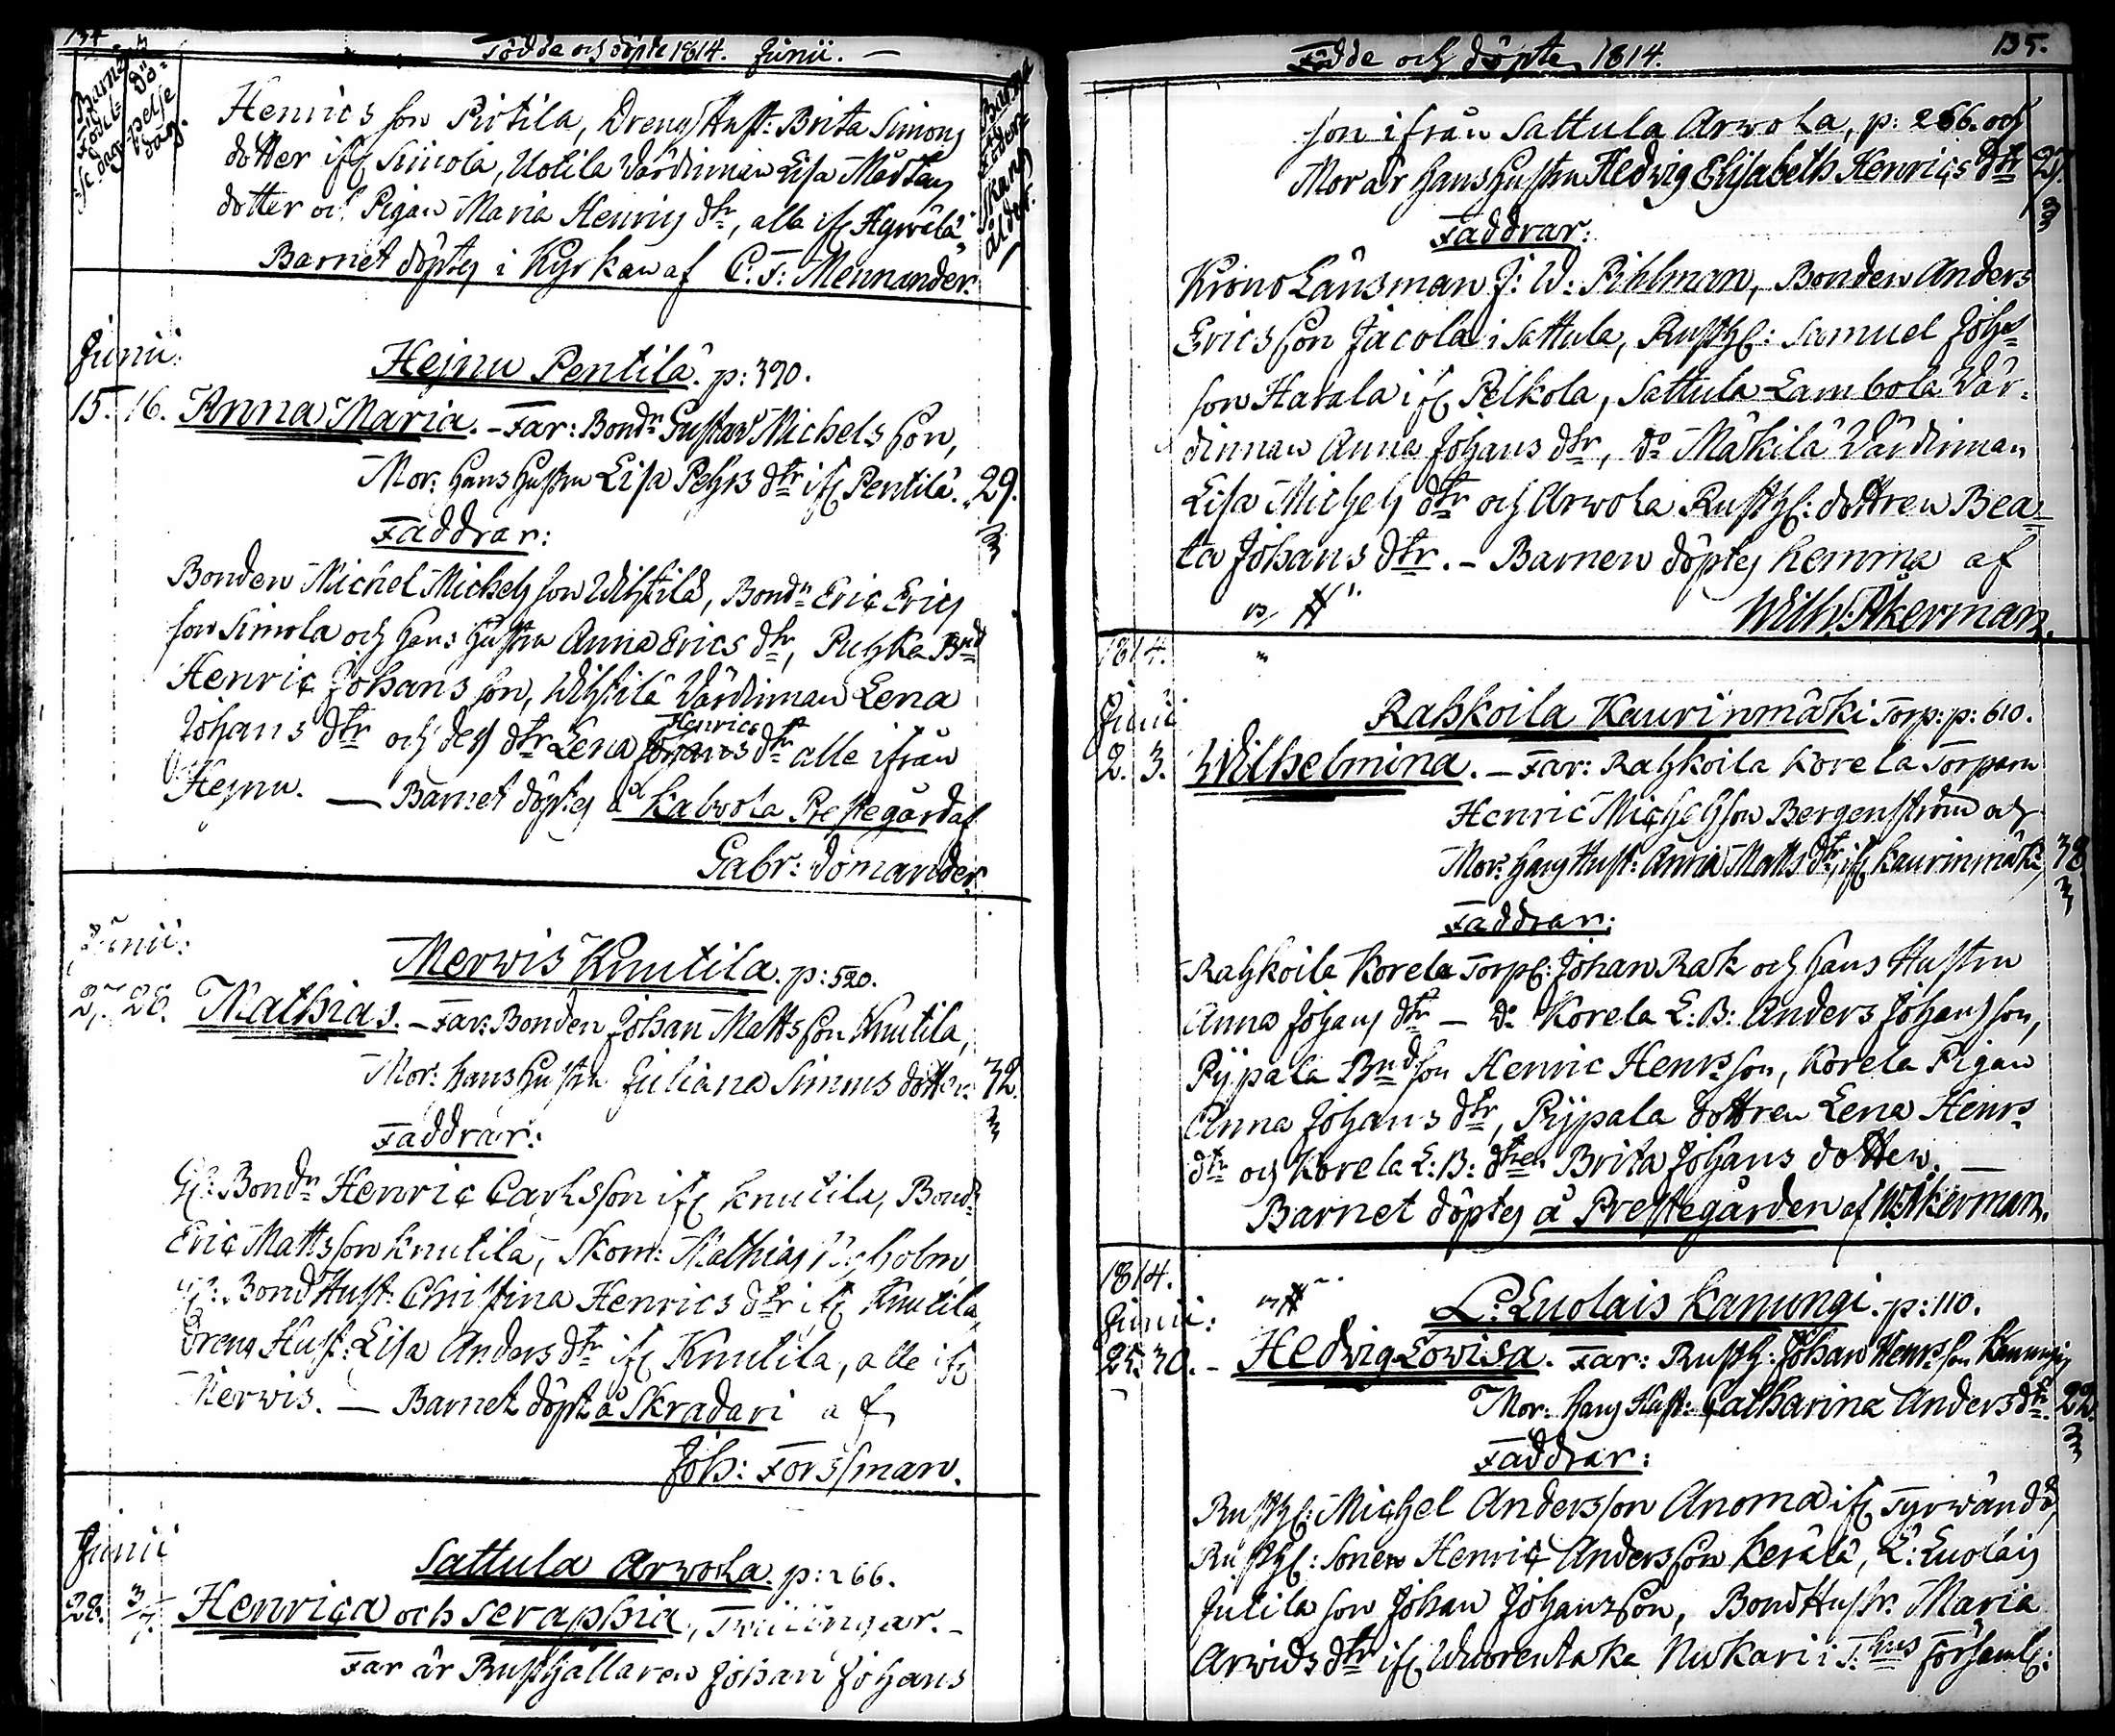 134
Födde och döpte 1814. Junii. —
Barnets Födelse dag.
Döpelse dag.
Henrics son Pirtila, Dreng Hust: Brita Simons
dotter ifr Simola, Uotila Värdinnan Lisa Mårtens
dotter och Pigan Maria Henrics dtr, alla ifr Hyrvälä.
Barnet döptes i Kyrkan af C. F: Mennander.
Junii:
Hejnu Pentilä. p: 390.
15. 16. Anna Maria. – Far: Bondn Gustav Michels son,
Mor: hans hustru Lisa Pehrs dtr ifr Pentilä. 29.
Faddrar:
Bonden Michel Michels son Wihtilä, Bondn Eric Erics
son Simola och hans hustru Anna Erics dtr, Puhka Bnd
Henric Johans son, Wihtilä Värdinnan Lena
Johans dtr och dess dtr Lena Henrics dtr alle ifrån
Hejnu. — Barnet döptes å Kalvola Prestegård af
Gabr: Domander.
Junii:
Merwis Knutila. p: 520.
27. 28. Mathias. – Far: Bonden Johan Matts son Knutila,
Mor: hans hustru Juliana Simons dotter. 32.
Faddrar:
Gl: Bondn Henric Carlsson ifr Knutila, Bondn
Eric Mattsson Knutila, Skom: Mathias
Gl: Bond Hust: Christina Henrics dtr ifr Knutila,
Dreng Hust: Lisa Anders dtr ifr Knutila, alle ifr
Merwis. — Barnet döpt å Skradari af
Joh: Forssman.
Junii
Sattula Arwola. p: 266.
28. 3/7. Henrica och Seraphia, Tvillingar. –
Far är Rusthållaren Johan Johans
Födde och döpte 1814.
135.
son ifrån Sattula Arwola, p: 266. och
Mor är hans hustru Hedwig Elisabeth Henrics dtr 27.
Faddrar:
Krono Länsman J: W: Pihlman, Bonden Anders
Ericsson Jacola i Sattula, Rusth: Samuel Johs
son Harala ifr Pelkola, Sattula Lambola Vär-
dinnan Anna Johans dtr, do Mäkilä Värdinnan
Lisa Michels dtr och Arwola Rusth: dottren Bea-
ta Johans dtr. – Barnen döptes hemma af
Wilh: Åkerman.
1814.
Junii
Rahkoila Kaurinmäki Torp: p: 610.
2. 3. Wilhelmina. – Far: Rahkoila Korela Torparn
Henric Michelsson Bergenström och
Mor: hans Hust: Anna Matts dtr, ifr Kaurinmäki, 38
Faddrar:
Rahkoila Korela Torp: Johan Rask och hans Hustru
Anna Johans dtr – do Korela L: B: Anders Johansson,
Pijpala Bndson Henric Henrs son, Korela Pigan
Anna Johans dtr, Pijpala dottren Lena Henrs
dtr och Korela L: B: dtren Brita Johans dotter. —
Barnet döptes å Prestegården af W: Åkerman.
1814.
Junii:
L: Luolais Kanungi. p: 110.
25. 30. – Hedwig Lowisa. Far: Rusth: Johan Henrs son Kanungi,
Mor: hans Hust: Catharina Anders dtr. 22.
Faddrar:
Rusth: Michel Andersson Anoma ifr Tyrwändö,
Rusth: Sonen Henric Andersson Kerälä, L: Luolais
Jutila son Johan Johansson, Bond Hustr: Maria
Arwids dtr ifr Wuorentaka Nukari i T:hus Församl: